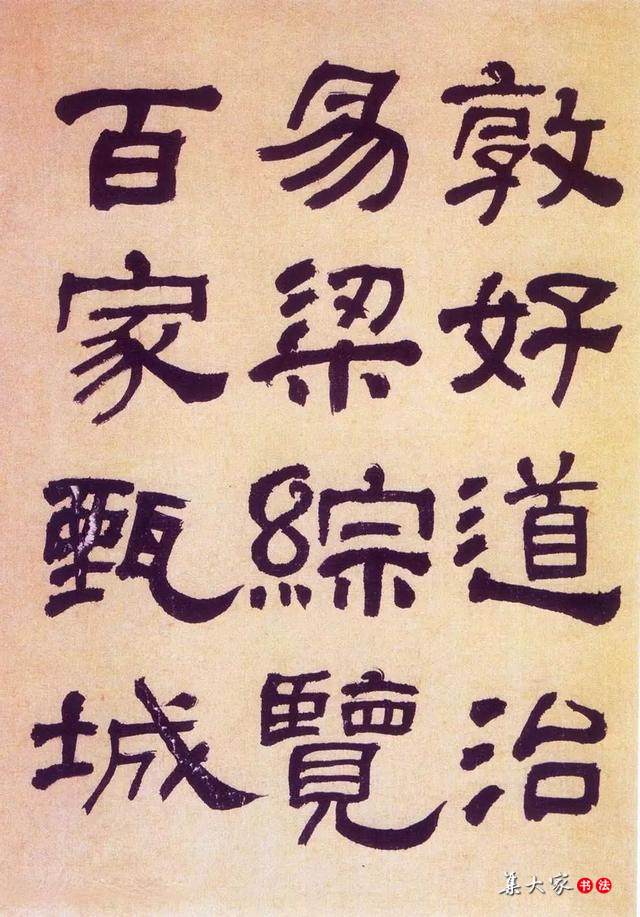 敦好道治
易梁綜覽
百家甄城
集大家书法